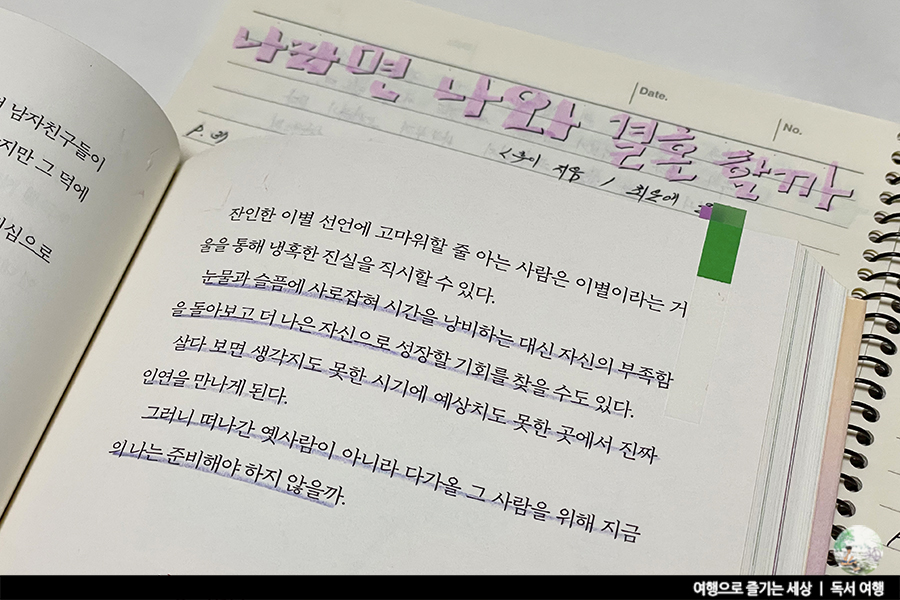 나라면 나와 결혼 할까
Date.
No.
지음 / 최은애
남자친구들이
지만 그 덕에
심으로
잔인한 이별 선언에 고마워할 줄 아는 사람은 이별이라는 거
울을 통해 냉혹한 진실을 직시할 수 있다.
눈물과 슬픔에 사로잡혀 시간을 낭비하는 대신 자신의 부족함
을 돌아보고 더 나은 자신으로 성장할 기회를 찾을 수도 있다.
살다 보면 생각지도 못한 시기에 예상치도 못한 곳에서 진짜
인연을 만나게 된다.
그러니 떠나간 옛사람이 아니라 다가올 그 사람을 위해 지금
의 나는 준비해야 하지 않을까.
여행으로 즐기는 세상 | 독서 여행